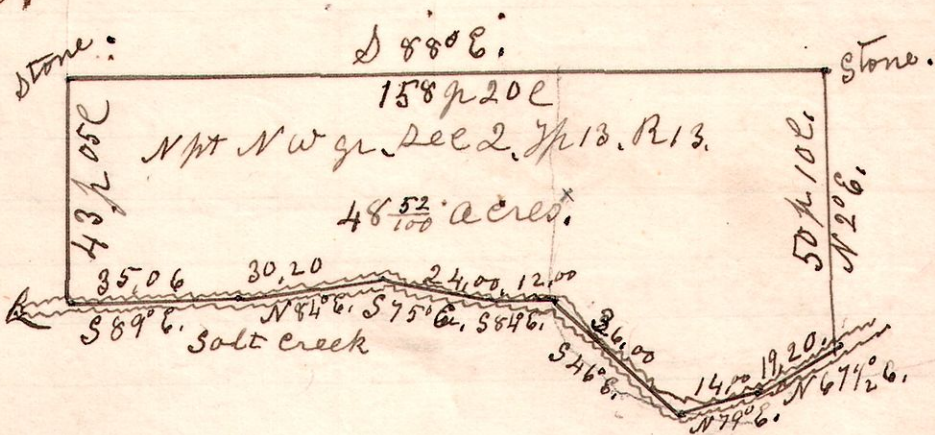 S 88° E.
Stone.
Stone.
158 p 20 l
N pt N W qr. Sec 2, Tp 13. R 13.
43 p 05 l
48 52/100 acres.
50 p 10 l.
N 2° E.
35,06
30,20
24,00
12,00
S 89° E.
N 84° E.
S 75° E.
S 84 E.
Salt Creek
36,00
S 46° E.
14,00
19,20.
N 79° E.
N 67 1/2° E.